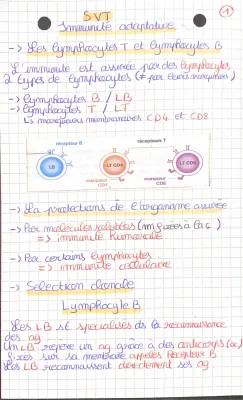 SVT
①
Immunité adaptative
-> Les lymphocytes T et lymphocytes B
L'immunité est assurée par des lymphocytes
2 types de lymphocytes (≠ par leurs marqueurs)
-> lymphocytes B / LB
-> lymphocytes T / LT
↳ marqueurs membranaires CD4 et CD8
récepteur B
récepteurs T
LB
LT CD4
LT CD8
marqueur CD4
marqueur CD8
-> La protections de l'organisme assurée
-> Par molécules solubles (non fixées à la ç)
=> immunité humorale
-> Par certains lymphocytes
=> immunité cellulaire
-> Sélection clonale
Lymphocyte B
Les LB st spécialisés ds la reconnaissance
des ag
Un LB repère un ag grâce à des anticorps (ac)
fixés sur sa membrane appelés Récepteur B
Les LB reconnaissent directement ses ag